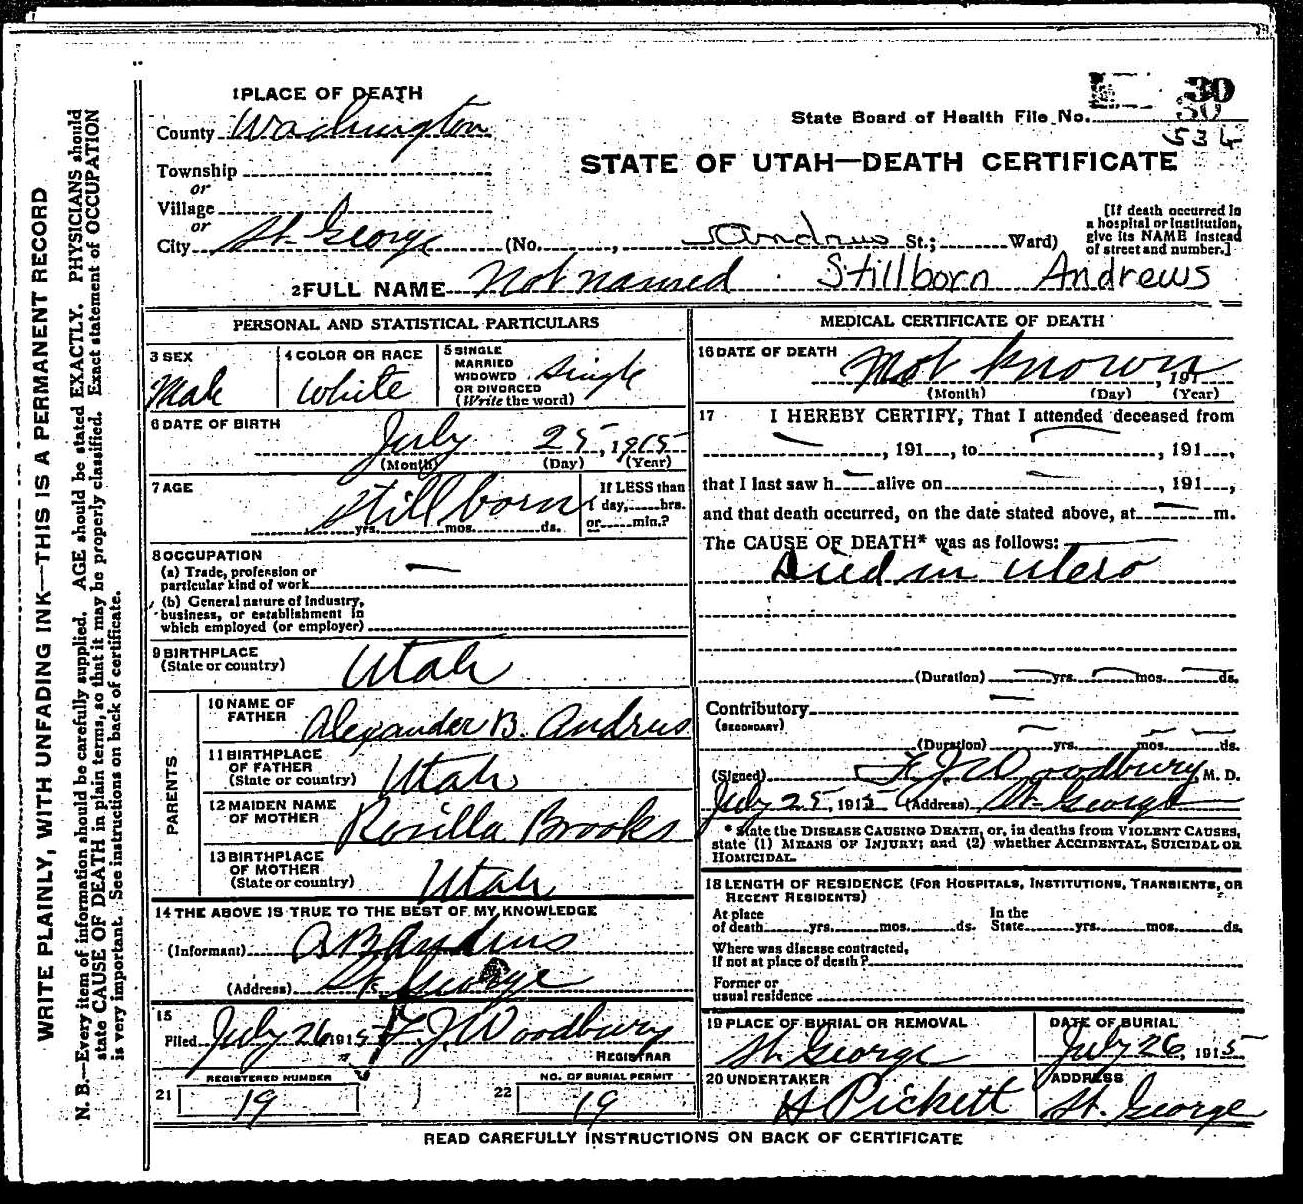 WRITE PLAINLY, WITH UNFADING INK—THIS IS A PERMANENT RECORD
N. B.—Every item of information should be carefully supplied. AGE should be stated EXACTLY. PHYSICIANS should
state CAUSE OF DEATH in plain terms, so that it may be properly classified. Exact statement of OCCUPATION
is very important. See instructions on back of certificate.
1 PLACE OF DEATH
County Washington
Township
or
Village
or
City St. George (No. , Andrus St.; Ward)
State Board of Health File No. 30
30
534
STATE OF UTAH—DEATH CERTIFICATE
[If death occurred in
a hospital or institution,
give its NAME instead
of street and number.]
2 FULL NAME Not named Stillborn Andrews
PERSONAL AND STATISTICAL PARTICULARS
3 SEX
Male
4 COLOR OR RACE
White
5 SINGLE
MARRIED
WIDOWED
OR DIVORCED
(Write the word)
Single
6 DATE OF BIRTH
July 25, 1915
(Month) (Day) (Year)
7 AGE
Stillborn
yrs. mos. ds.
If LESS than
1 day, hrs.
or min.?
8 OCCUPATION
(a) Trade, profession or
particular kind of work —
(b) General nature of industry,
business, or establishment in
which employed (or employer)
9 BIRTHPLACE
(State or country) Utah
PARENTS
10 NAME OF
FATHER Alexander B. Andrus
11 BIRTHPLACE
OF FATHER
(State or country) Utah
12 MAIDEN NAME
OF MOTHER Rosilla Brooks
13 BIRTHPLACE
OF MOTHER
(State or country) Utah
14 THE ABOVE IS TRUE TO THE BEST OF MY KNOWLEDGE
(Informant) A B Andrus
(Address) St. George
15
Filed July 26 1915 F. J. Woodbury
REGISTRAR
REGISTERED NUMBER
21 19
NO. OF BURIAL PERMIT
22 19
MEDICAL CERTIFICATE OF DEATH
16 DATE OF DEATH
Not known, 191
(Month) (Day) (Year)
17 I HEREBY CERTIFY, That I attended deceased from
— , 191 , to — , 191 ,
that I last saw h — alive on — , 191 ,
and that death occurred, on the date stated above, at — m.
The CAUSE OF DEATH* was as follows:
Died in utero
(Duration) — yrs. — mos. — ds.
Contributory —
(SECONDARY)
(Duration) — yrs. — mos. — ds.
(Signed) F. J. Woodbury M. D.
July 25, 1915 (Address) St. George
* State the DISEASE CAUSING DEATH, or, in deaths from VIOLENT CAUSES,
state (1) MEANS OF INJURY; and (2) whether ACCIDENTAL, SUICIDAL OR
HOMICIDAL.
18 LENGTH OF RESIDENCE (FOR HOSPITALS, INSTITUTIONS, TRANSIENTS, OR
RECENT RESIDENTS)
At place
of death yrs. mos. ds.
In the
State yrs. mos. ds.
Where was disease contracted,
If not at place of death?
Former or
usual residence
19 PLACE OF BURIAL OR REMOVAL
St. George
DATE OF BURIAL
July 26, 1915
20 UNDERTAKER
H Pickett
ADDRESS
St. George
READ CAREFULLY INSTRUCTIONS ON BACK OF CERTIFICATE